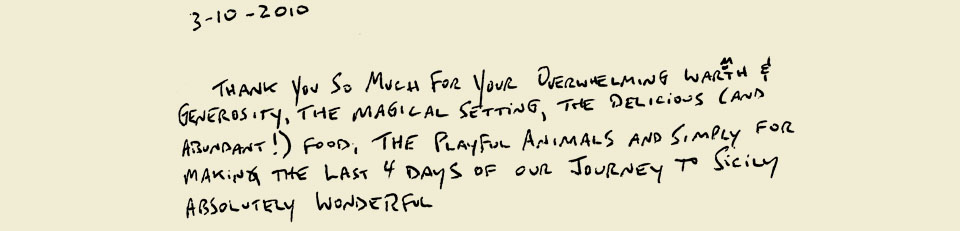 3-10-2010
THANK YOU SO MUCH FOR YOUR OVERWHELMING WARMTH &
GENEROSITY, THE MAGICAL SETTING, THE DELICIOUS (AND
ABUNDANT!) FOOD, THE PLAYFUL ANIMALS AND SIMPLY FOR
MAKING THE LAST 4 DAYS OF OUR JOURNEY TO SICILY
ABSOLUTELY WONDERFUL